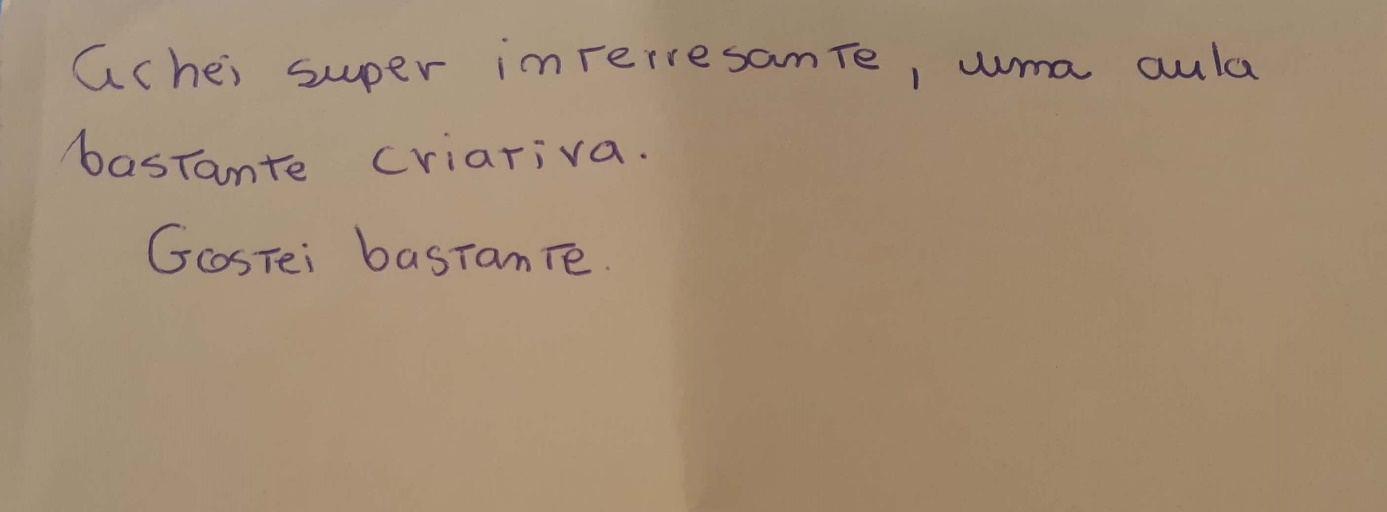 Achei super interresante, uma aula
bastante criativa.
Gostei bastante.